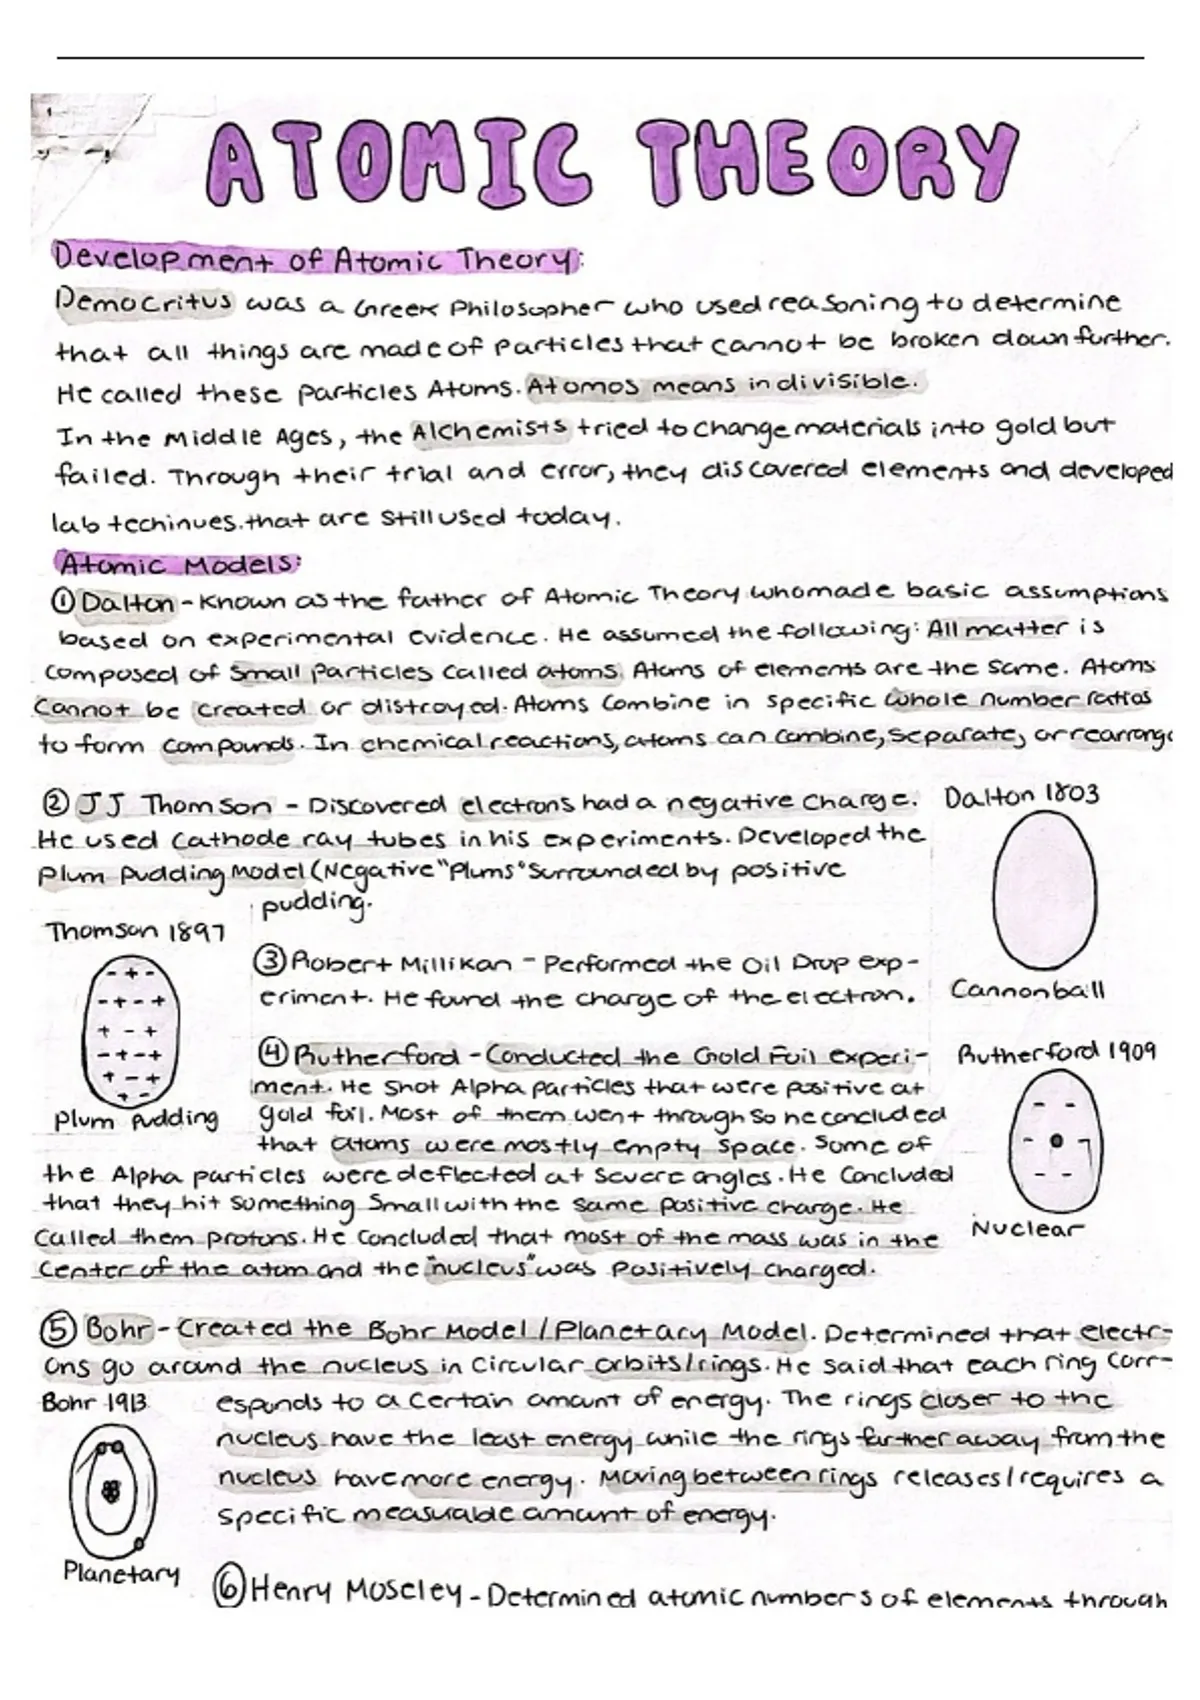 ATOMIC THEORY
Development of Atomic Theory:
Democritus was a Greek Philosopher who used reasoning to determine
that all things are made of particles that cannot be broken down further.
He called these particles Atoms. Atomos means indivisible.
In the Middle Ages, the Alchemists tried to change materials into gold but
failed. Through their trial and error, they discovered elements and developed
lab techinues that are still used today.
Atomic Models:
① Dalton - Known as the father of Atomic Theory who made basic assumptions
based on experimental evidence. He assumed the following: All matter is
composed of small particles called atoms. Atoms of elements are the same. Atoms
cannot be created or distroyed. Atoms combine in specific whole number ratios
to form compounds. In chemical reactions, atoms can combine, separate, or rearrange
② JJ Thomson - Discovered electrons had a negative charge.
He used cathode ray tubes in his experiments. Developed the
Plum Pudding Model (Negative "Plums" surrounded by positive
pudding.
Dalton 1803
Cannonball
Thomson 1897
- + -
- + - +
+ - +
- + - +
+ - +
+ -
Plum Pudding
③ Robert Millikan - Performed the Oil Drop exp-
eriment. He found the charge of the electron.
④ Rutherford - Conducted the Gold Foil experi-
ment. He shot Alpha particles that were positive at
gold foil. Most of them went through so he concluded
that atoms were mostly empty space. Some of
the Alpha particles were deflected at severe angles. He concluded
that they hit something small with the same positive charge. He
called them protons. He concluded that most of the mass was in the
center of the atom and the "nucleus" was positively charged.
Rutherford 1909
- -
- -
- -
Nuclear
⑤ Bohr - Created the Bohr Model / Planetary Model. Determined that electr-
ons go around the nucleus in circular orbits/rings. He said that each ring corr-
esponds to a certain amount of energy. The rings closer to the
nucleus have the least energy while the rings farther away from the
nucleus have more energy. Moving between rings releases/requires a
specific measurable amount of energy.
Bohr 1913
Planetary
⑥ Henry Moseley - Determined atomic numbers of elements through